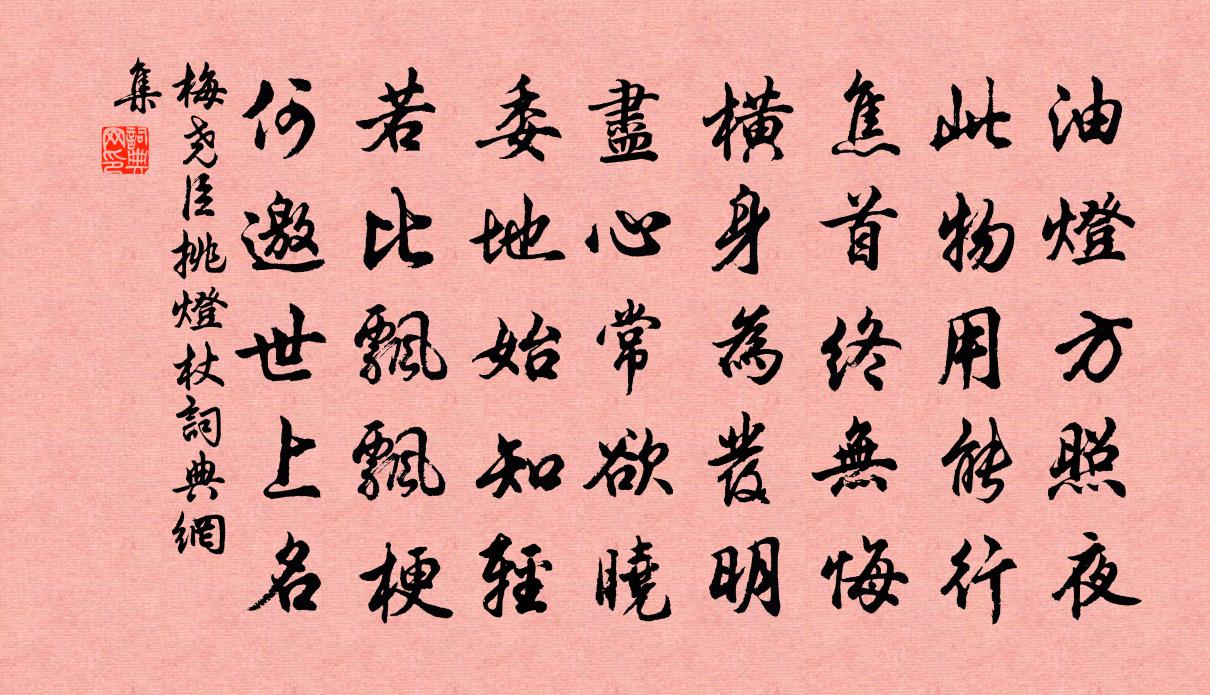 油燈方照夜
此物用能行
焦首終無悔
橫身為發明
盡心常欲曉
委地始知輕
若比飄飄梗
何邀世上名
梅堯臣挑燈杖詞典網
集
詞典
网印